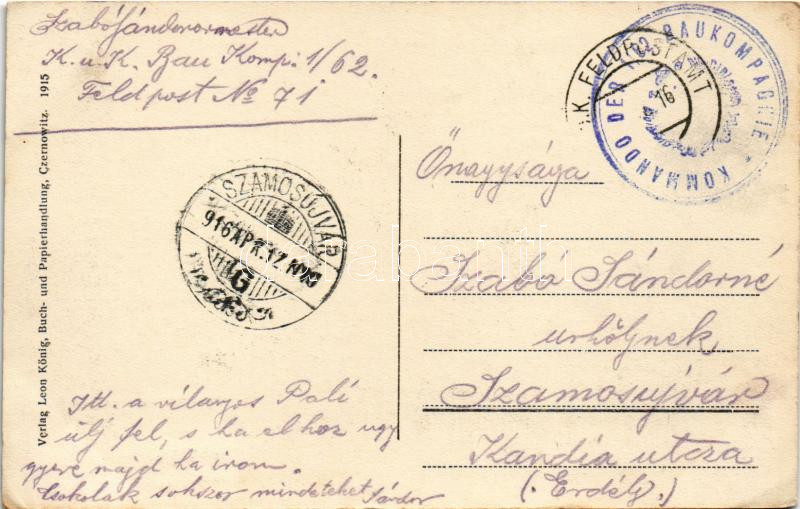 Szabó Sándor ormester
K. u. K. Bau Komp: 1/62.
Feldpost No 71
K. FELDPOSTAMT
16
KOMMANDO DER BAUKOMPAGNIE
SZAMOSUJVÁR
916 APR. 12
G
Verlag Leon König, Buch- und Papierhandlung, Czernowitz. 1915
Itt a világos Pali
ülj fel, s ha elhoz ugy
gyere majd ha irom.
Csokolak sokszor mindeteket Sándor
Őnagysága
Szabó Sándorné
urhölynek
Szamosujvár
Kandia utcza
(. Erdély.)